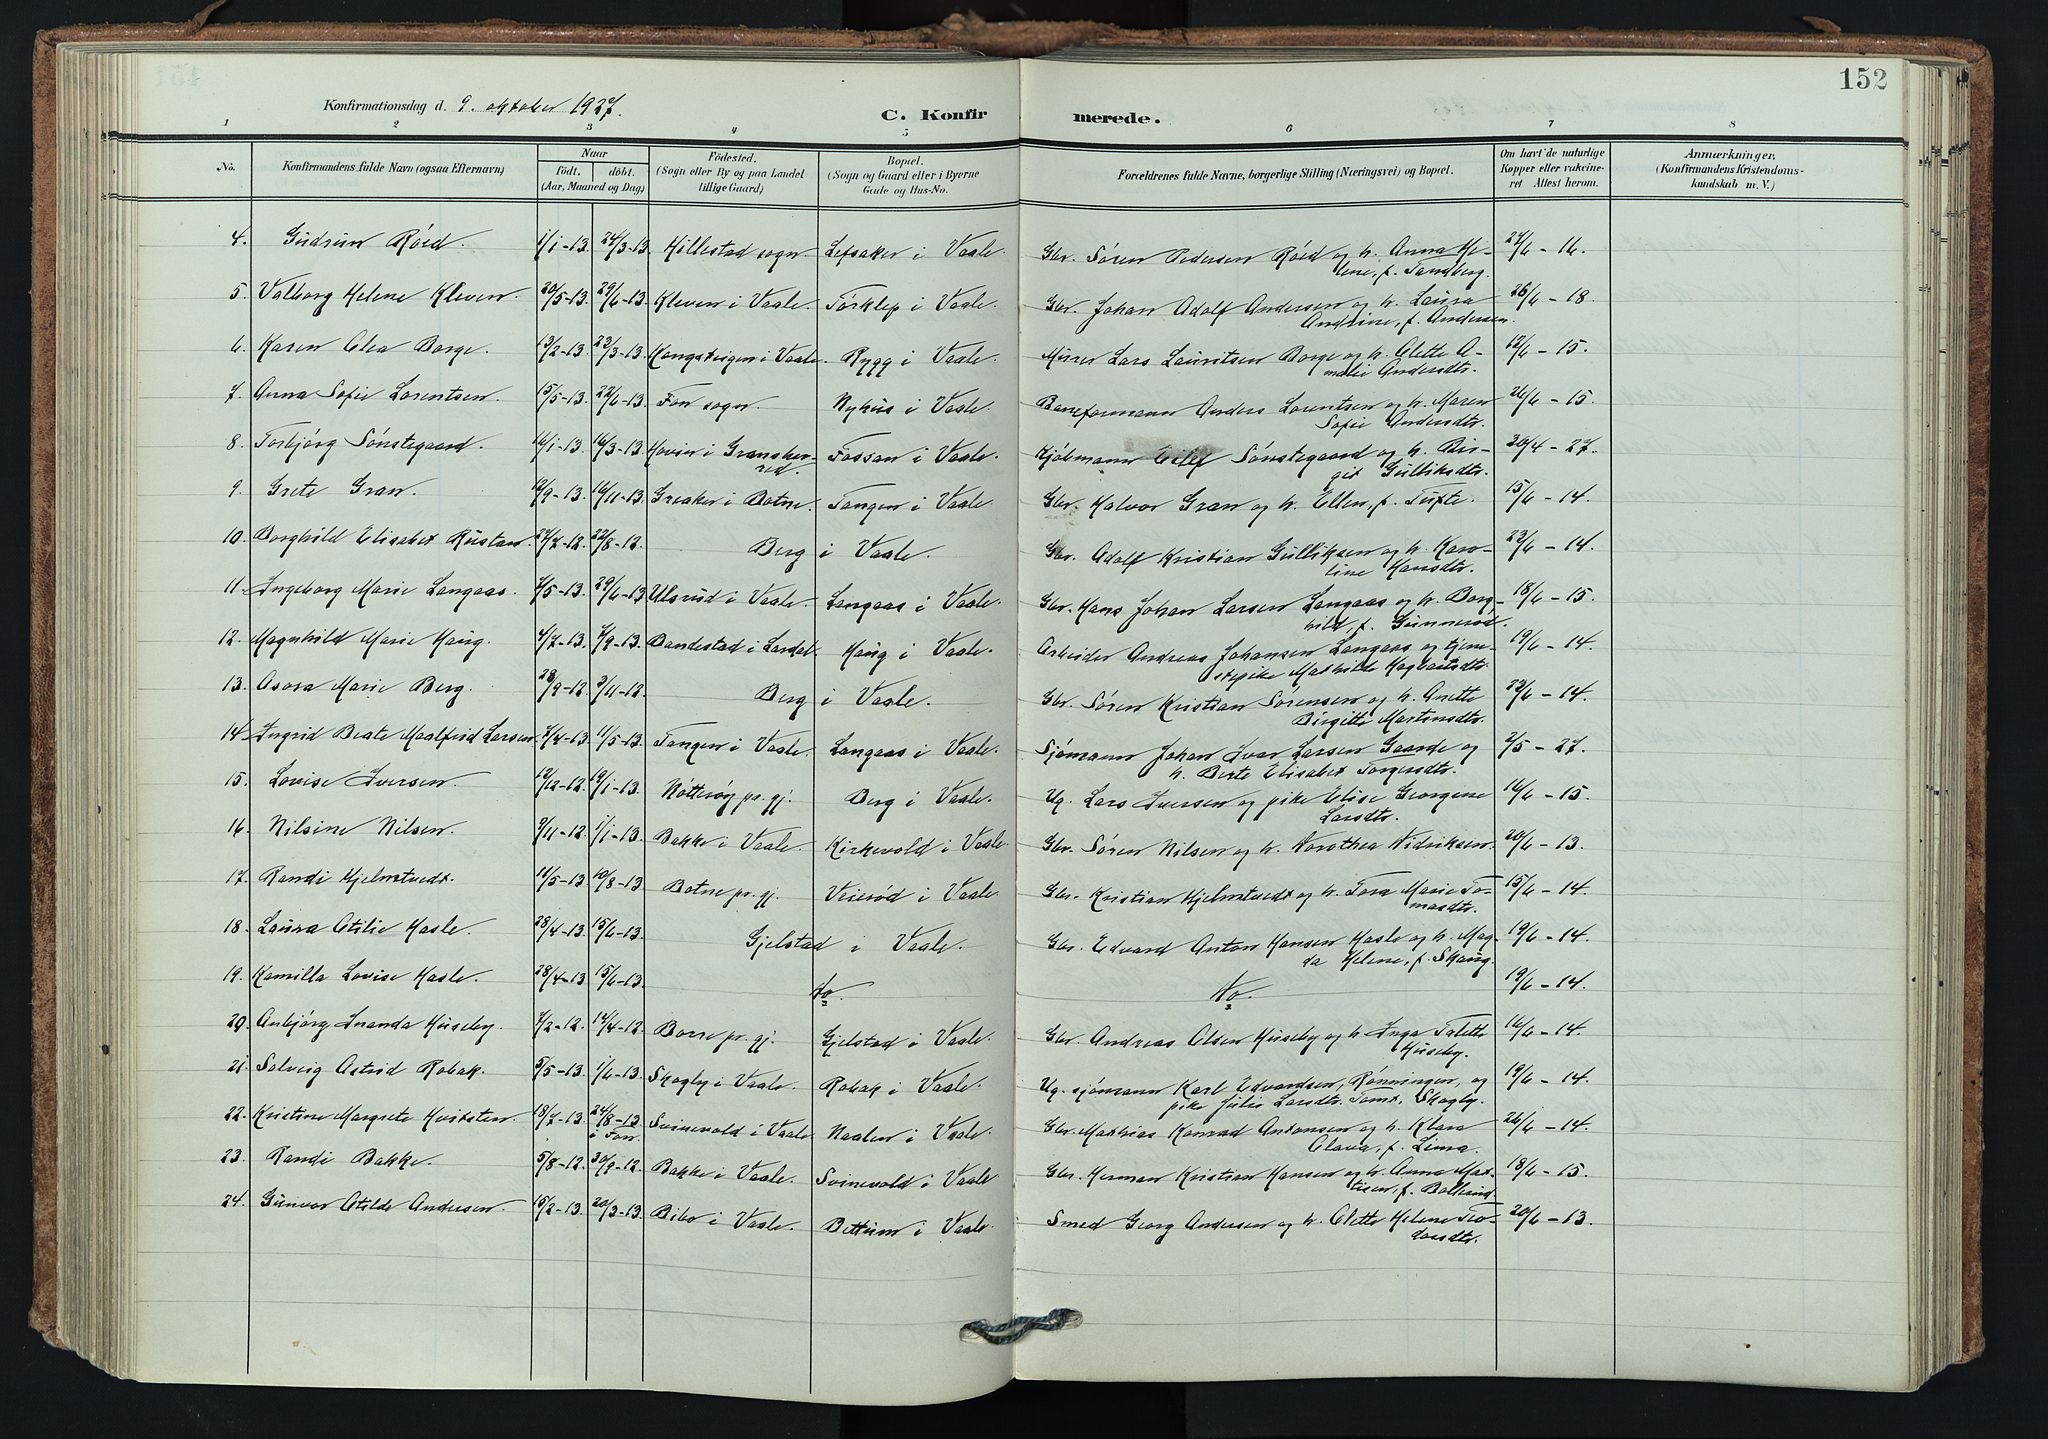 152
Konfirmationsdag d. 9. oktober 1927.
C. Konfirmerede.
1 2 3 4 5 6 7 8
No.
Konfirmandens fulde Navn (ogsaa Efternavn)
Naar
født. døbt.
(Aar, Maaned og Dag)
Fødested.
(Sogn eller By og paa Landet
tillige Gaard)
Bopæl.
(Sogn og Gaard eller i Byerne
Gade og Hus-No.
Forældrenes fulde Navne, borgerlige Stilling (Næringsvei) og Bopæl.
Om havt de naturlige
Kopper eller vakcine-
ret Attest herom.
Anmærkninger.
(Konfirmandens Kristendoms-
kundskab m. V.)
4. Gudrun Röed. 1/1-13. 24/3-13. Hillestad sogn. Lefsaker i Vaale. Gbr. Sören Pedersen Röed og h. Anna He- 27/6 - 16.
lene, f. Sandberg.
5. Valborg Helene Kleven. 20/5-13. 29/6-13. Kleven i Vaale. Törklep i Vaale. Gbr. Johan Adolf Andersen og h. Laura 26/6 - 18.
Andrine, f. Andersen.
6. Karen Olea Borge. 13/2-13. 23/3-13. Kongsteigen i Vaale. Rygg i Vaale. Murer Lars Lauritsen Borge og h. Olette A- 12/6 - 15.
malie Andersdtr.
7. Anna Sofie Lorentsen. 15/5-13. 22/6-13. Fon sogn. Nyhus i Vaale. Baneformann Anders Lorentsen og h. Maren 26/6 - 15.
Sofie Andersdtr.
8. Torbjörg Sönstegaard. 16/1-13. 16/3-13. Hovin i Gransher- Fossan i Vaale. Kjöbmann Eilef Sönstegaard og h. Bir- 20/4 - 27.
red. git Gulliksdtr.
9. Grete Gran. 12/9-13. 16/11-13. Greaker i Botne. Tangen i Vaale. Gbr. Halvor Gran og h. Ellen, f. Tufte. 15/6 - 14.
10. Borghild Elisabet Rustan. 27/7-12. 22/8-12. Berg i Vaale. Gbr. Adolf Kristian Gulliksen og h. Karo- 23/6 - 14.
line Hansdtr.
11. Ingeborg Marie Langaas. 7/5-13. 29/6-13 Ulsrud i Vaale. Langaas i Vaale. Gbr. Hans Johan Larsen Langaas og h. Borg- 18/6 - 15.
hild, f. Gunneröd.
12. Magnhild Marie Haug. 4/7-13. 7/9-13. Bandestad i Lardal. Haug i Vaale. Arbeider Andreas Johansen Langaas og tjene- 19/6 - 14.
stepike Mathilde Hagbartsdtr.
13. Asora Marie Berg. 28/9-12. 3/11-12. Berg i Vaale. Gbr. Sören Kristian Sörensen og h. Anette 22/6 - 14.
Birgitte Martinsdtr.
14. Ingrid Beate Maalfrid Larsen. 7/4-13. 11/5-13. Tangen i Vaale. Langaas i Vaale. Sjömann Johan Ivar Larsen Gaarde og 2/5 - 27.
h. Berte Elisabet Torgersdtr.
15. Lovise Iversen. 12/12-12. 19/1-13. Nötteröy pr.gj. Berg i Vaale. Ug. Lars Iversen og pike Elise Georgene 16/6 - 15.
Larsdtr.
16. Nilsine Nilsen. 9/11-12. 1/1-13. Bakke i Vaale. Kirkevold i Vaale. Gbr. Sören Nilsen og h. Dorothea Didriksen. 20/6 - 13.
17. Randi Hjelmtvedt. 11/5-13 10/8-13. Botne pr.gj. Veieröd i Vaale. Gbr. Kristian Hjelmtvedt og h. Tora Marie To- 15/6 - 14.
masdtr.
18. Laura Otilie Hasle. 28/4-13. 15/6-13. Gjelstad i Vaale. Gbr. Edvard Anton Hansen Hasle og h. Mag- 19/6 - 14.
da Helene, f. Skaug.
19. Kamilla Lovise Hasle. 28/4-13 15/6-13. Do. Do. 19/6 - 14.
20. Anbjörg Inanda Huseby. 7/2-12. 14/4-12. Borre pr.gj. Gjelstad i Vaale. Gbr. Andreas Olsen Huseby og h. Inga Talette 16/6 - 14.
Huseby.
21. Solveig Astrid Robak. 5/5-13. 1/6-13. Skogly i Vaale. Robak i Vaale. Ug. sjömann Karl Edvardsen, Rönningen, og 19/6 - 14.
pike Julie Larsdtr. Tomt, Skogly.
22. Kristine Margrete Hvitsten. 18/7-13. 24/8-13 Svinevold i Vaale. Naalen i Vaale. Gbr. Mathias Konrad Antonsen og h. Klara 26/6 - 14.
i Fon. Olava, f. Linna.
23. Randi Bakke. 5/8-12. 30/9-12. Bakke i Vaale. Svinevold i Vaale. Gbr. Herman Kristian Hansen og h. Anna Mat- 18/6 - 15.
24. Gunvor Otilde Andersen. 15/2-13. 20/3-13. Bibo i Vaale. Bettum i Vaale. Smed Georg Andersen og h. Olette Helene Teo- 20/6 - 13.
dorsdtr.